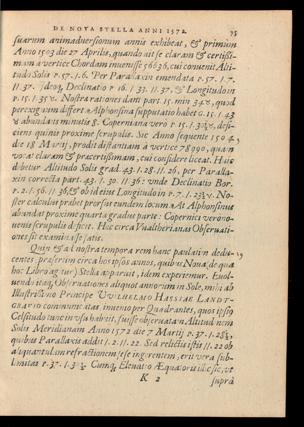 DE NOVA STELLA ANNI 1572. 75
suarum animadversionum annis exhibeat, & primum
Anno 1503 die 27 Aprilis, quando ait se claram & certissi-
mam à vertice Chordam invenisse 56636, cui convenit Alti-
tudo Solis P. 57. 1. 6. Per Parallaxin emendata P. 57. 1. 7.
11. 37. ideoq, Declinatio P. 16. 1. 33. 11. 37. & Longitudo in
P. 15. 1. 35 ♉. Nostra rationes dant part. 15. min. 34 ♉, quod
perexiguum differt. Alphonsina supputatio habet G. 15. 1. 43
♉ abundans minutis 8. Copernicana vero P. 15. 1. ♉, defi-
ciens quinis proxime scrupulis. Sic Anno sequente 1504
die 18 Martij, prodit distantiam à vertice 78990, quam
vocat claram & praecertissimam, cui considere liceat. Huic
debetur Altitudo Solis grad. 43. 1. 28. 11. 26, per Paralla-
xin correcta part. 43. 1. 30. 11. 36: unde Declinatio Bor.
P. 2. 1. 56. 11. 36, & ob id eius Longitudo in P. 7. 1. ♈. No-
ster calculus praebet prorsus eundem locum. At Alphonsinus
abundat proxime quarta gradus parte: Copernici vero no-
venis scrupulis deficit. Hoc circa Vualtherianas Observati-
ones sit examinasse satis.
Quin & ad nostra tempora rem hanc paulatim dedu-
centes: praesertim circa hos ipsos annos, quibus Nova (de qua
hoc Libro agitur) Stella apparuit, idem experiemur. Evol-
vendo itaq, Observationes aliquot annorum in Sole, mihi ab
Illustrissimo Principe VVILHELMO HASSIAE LANDT-
GRAVIO communicatas, invenio per Quadrantes, quos ipsius
Celsitudo tunc in usu habuit, fuisse observatam Altitudinem
Solis Meridianam Anno 1572 die 7 Martij P. 37. 1.
quibus Parallaxis addit 1. 2. 11. 22. Sed relictis istis 11. 22 ob
aliquantulam refractionem sese ingerentem, erit vera sub-
limitas P. 37. 1. Cumq, Elevatio Aequatoris illic sit, ut
K 2 supra